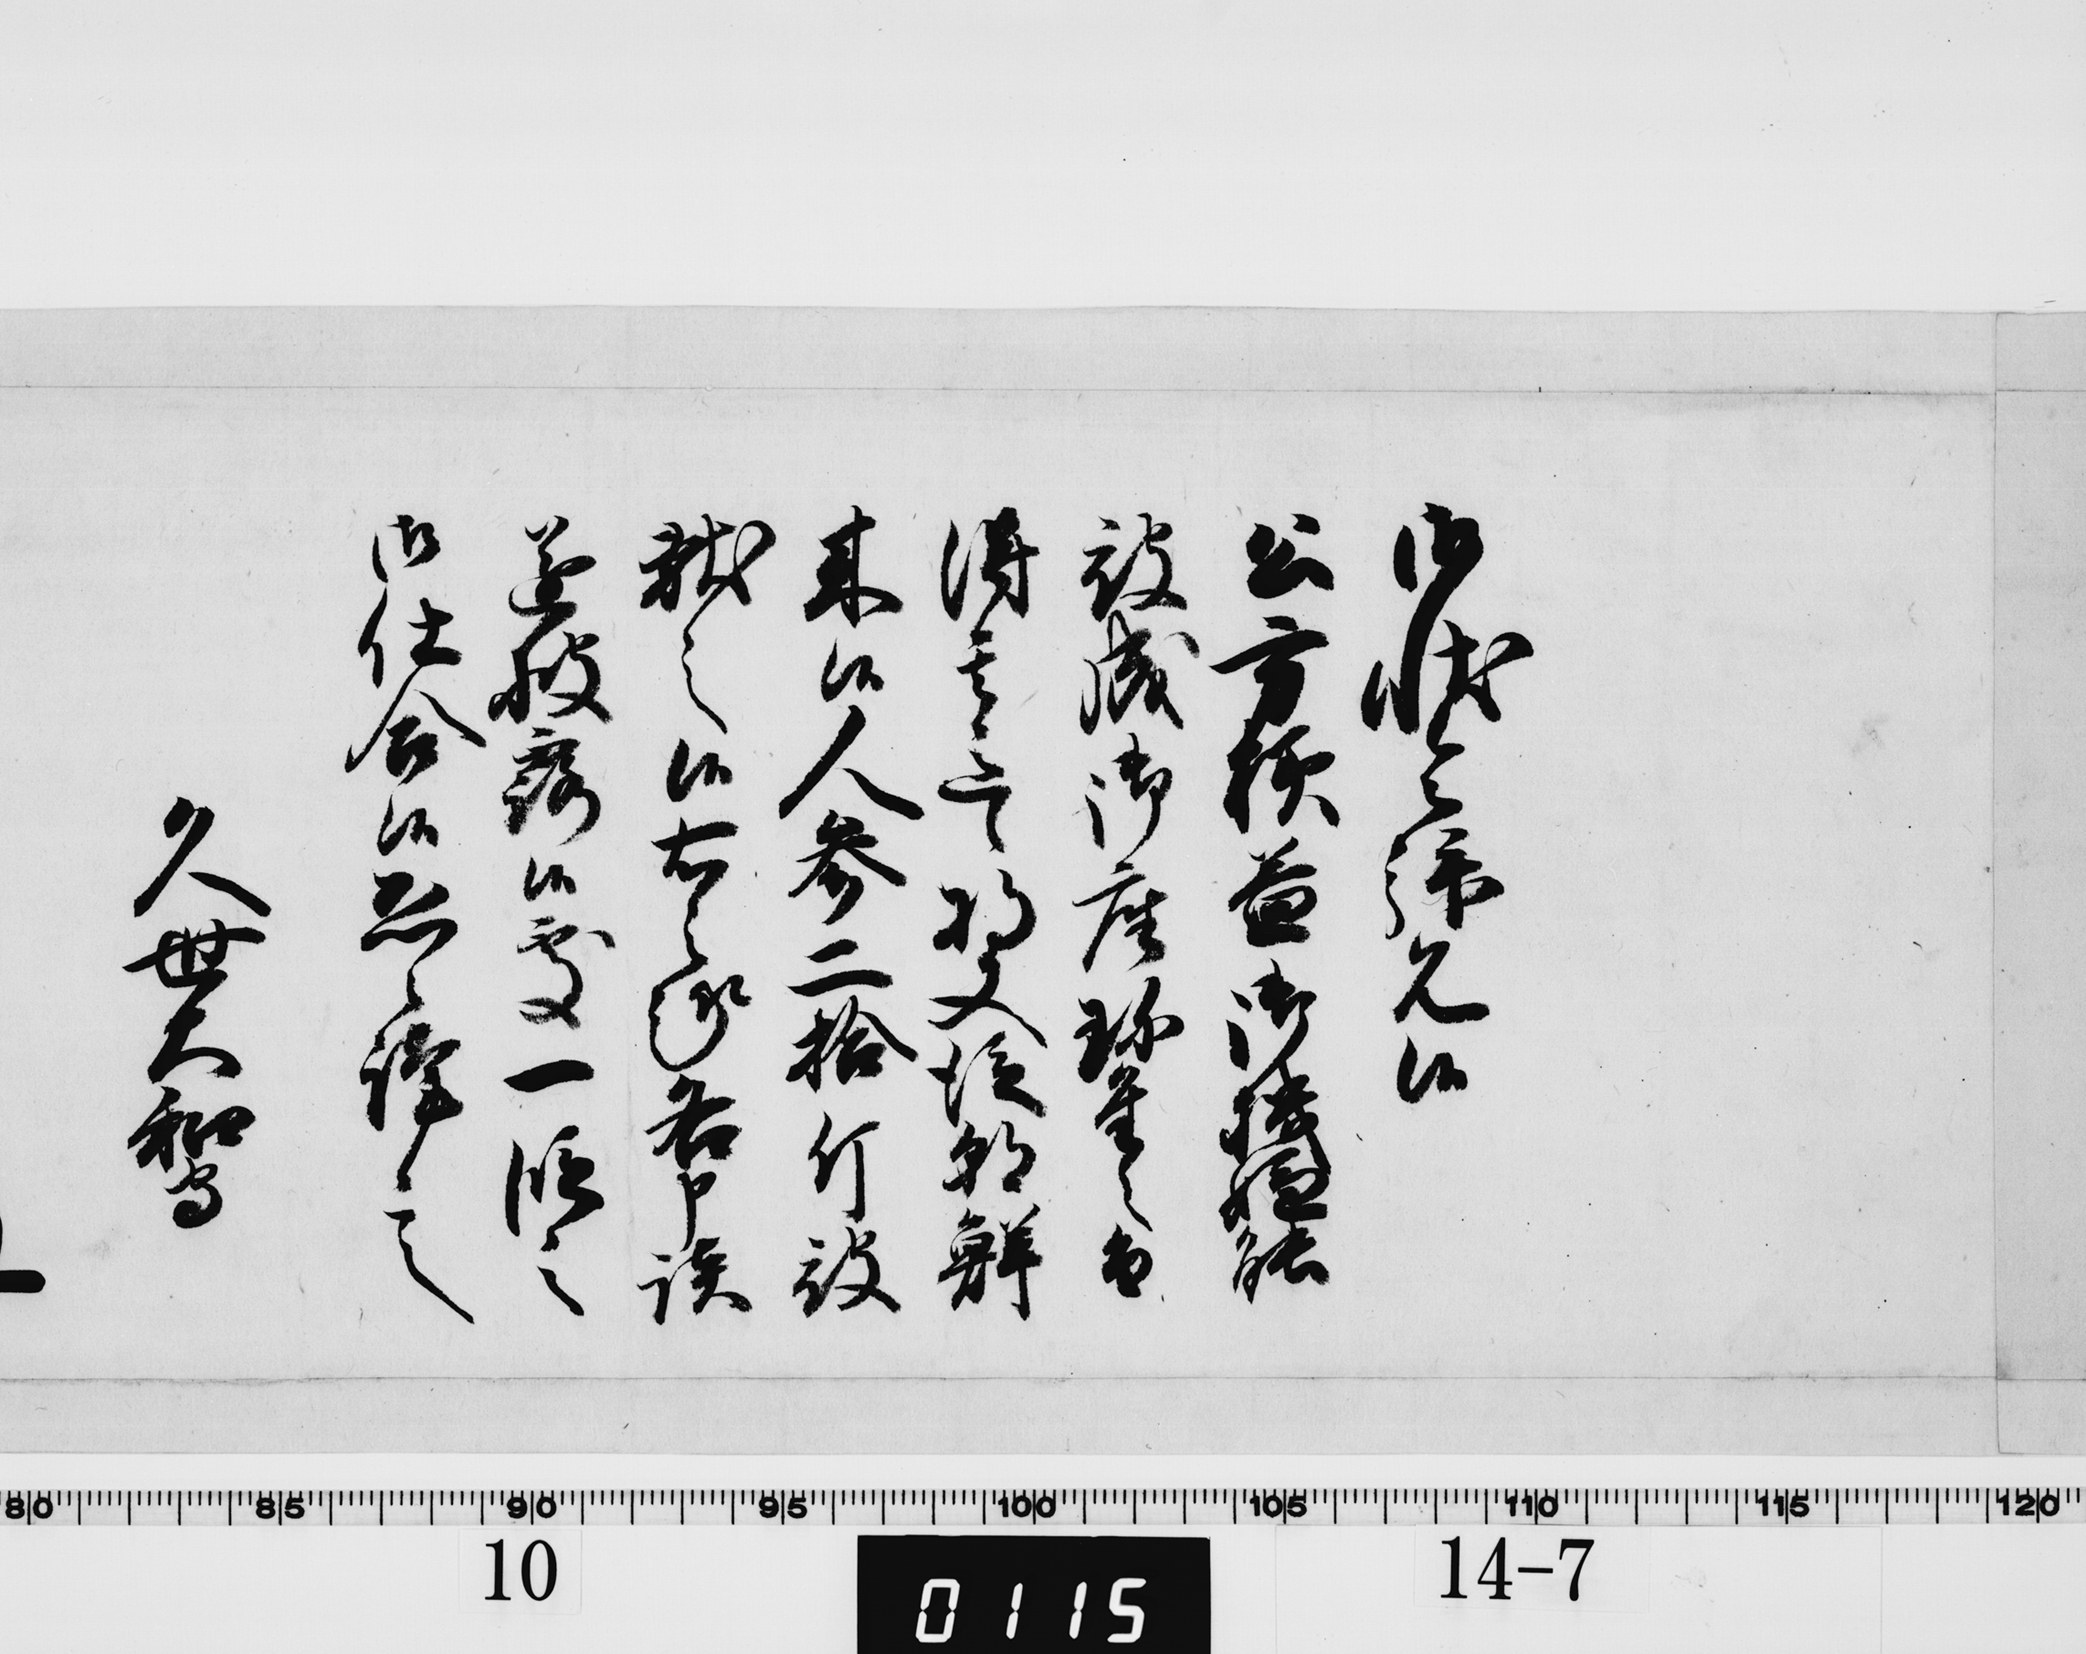 御状令拝見候
公方様益御機嫌能
被成御座珍重之由
得其意候将又従朝鮮
来候人参二拾斤被
献之候右之通各申談
遂披露候処一段之
御仕合候恐々謹言
久世大和守
80 85 90 95 100 105 110 115 120
10
0115
14-7